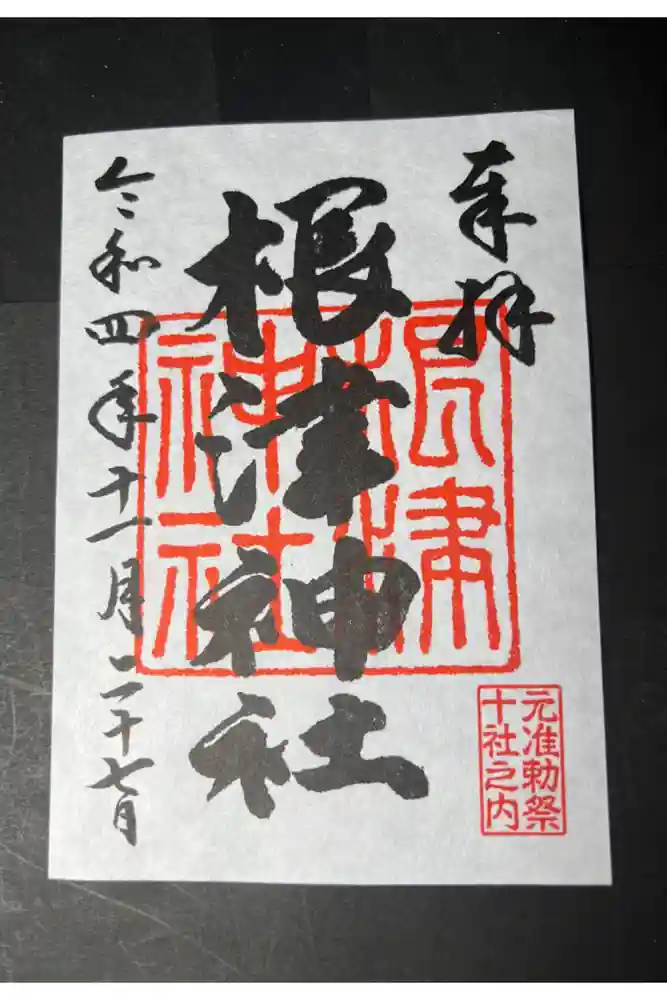 奉拝
根津神社
令和四年十一月二十七日
根津
神社
元准勅祭
十社之内